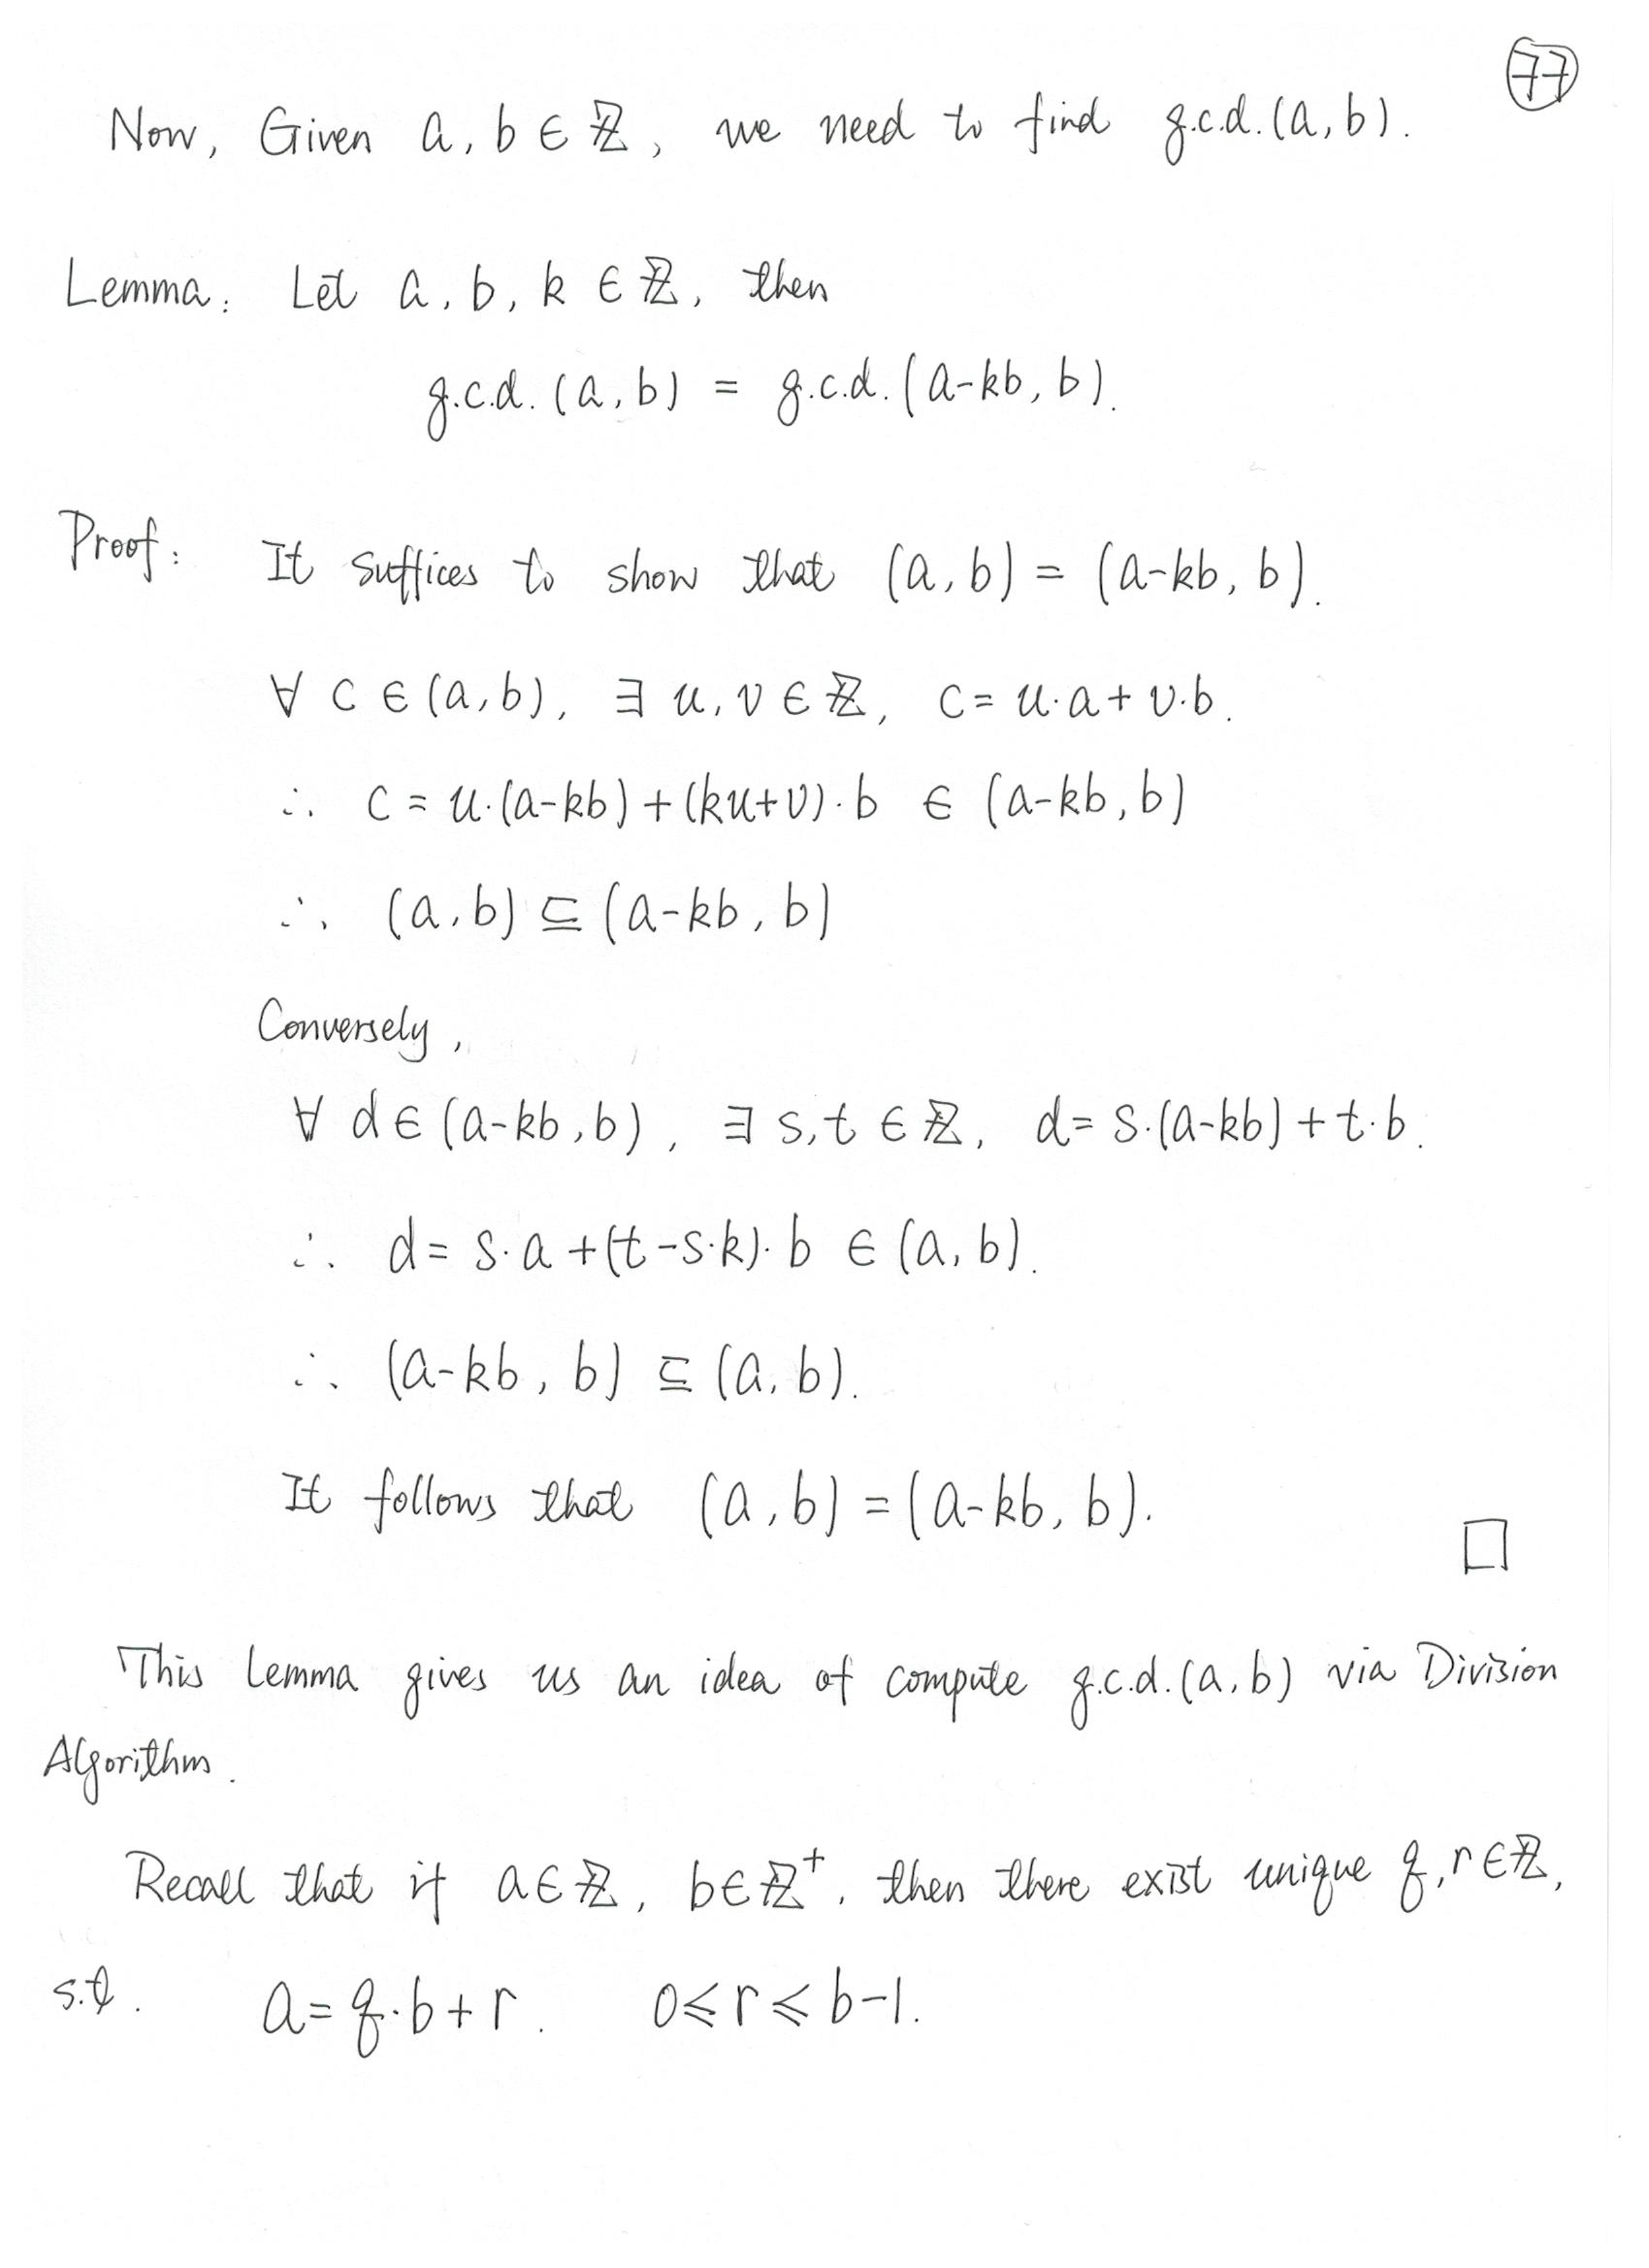 77
Now, Given a, b ∈ ℤ, we need to find g.c.d.(a, b).
Lemma: Let a, b, k ∈ ℤ, then
g.c.d.(a, b) = g.c.d.(a-kb, b).
Proof: It suffices to show that (a, b) = (a-kb, b).
∀ c ∈ (a, b), ∃ u, v ∈ ℤ, c = u·a + v·b.
∴ c = u·(a-kb) + (ku+v)·b ∈ (a-kb, b)
∴ (a, b) ⊆ (a-kb, b)
Conversely,
∀ d ∈ (a-kb, b), ∃ s, t ∈ ℤ, d = s·(a-kb) + t·b.
∴ d = s·a + (t-s·k)·b ∈ (a, b).
∴ (a-kb, b) ⊆ (a, b).
It follows that (a, b) = (a-kb, b).
□
This Lemma gives us an idea of compute g.c.d.(a, b) via Division
Algorithm.
Recall that if a ∈ ℤ, b ∈ ℤ⁺, then there exist unique q, r ∈ ℤ,
s.t. a = q·b + r. 0 ⩽ r ⩽ b-1.